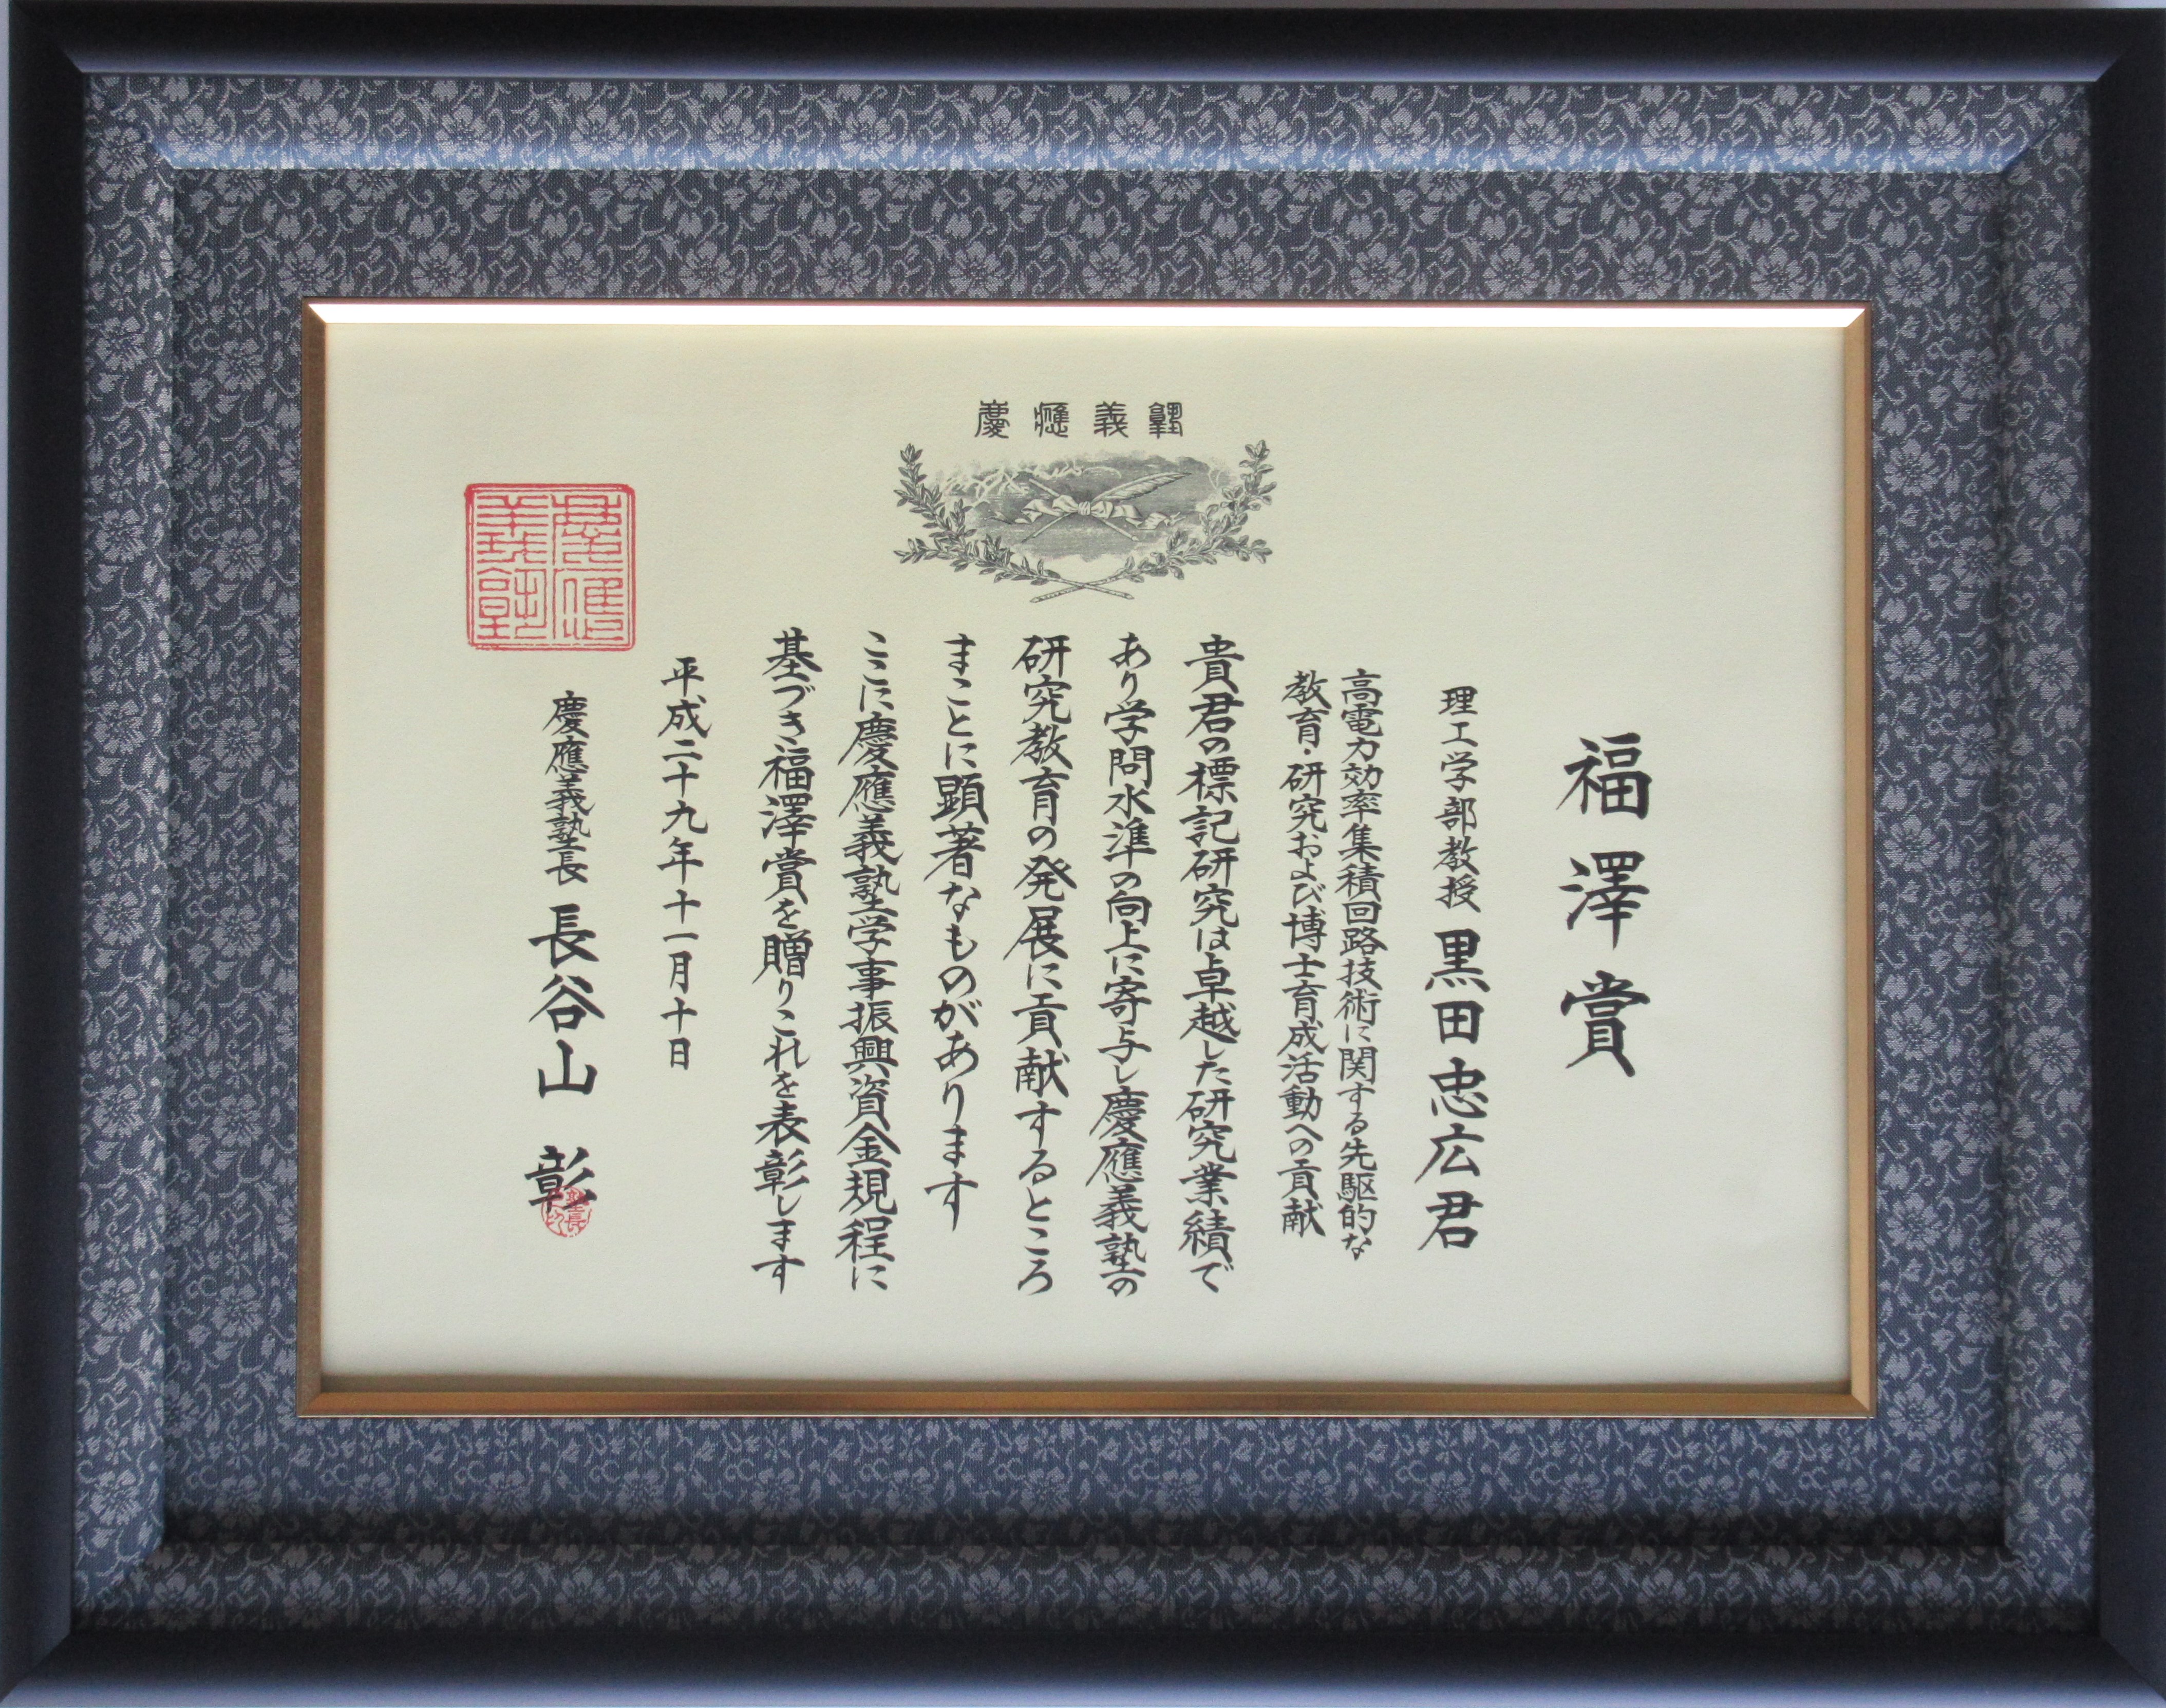 慶應義塾
福澤賞
理工学部教授 黒田忠広君
高電力効率集積回路技術に関する先駆的な
教育・研究および博士育成活動への貢献
貴君の標記研究は卓越した研究業績で
あり学問水準の向上に寄与し慶應義塾の
研究教育の発展に貢献するところ
まことに顕著なものがあります
ここに慶應義塾学事振興資金規程に
基づき福澤賞を贈りこれを表彰します
平成二十九年十一月十日
慶應義塾長 長谷山 彰
慶應義塾